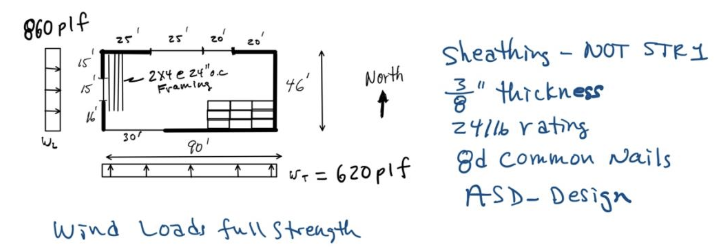 860 plf
25' 25' 20' 20'
15'
15'
16'
2x4 @ 24" o.c
Framing
46'
North
W_L
30'
90'
W_T = 620 plf
Wind Loads full Strength
Sheathing - NOT STR 1
3/8" thickness
24/16 rating
8d Common Nails
ASD - Design